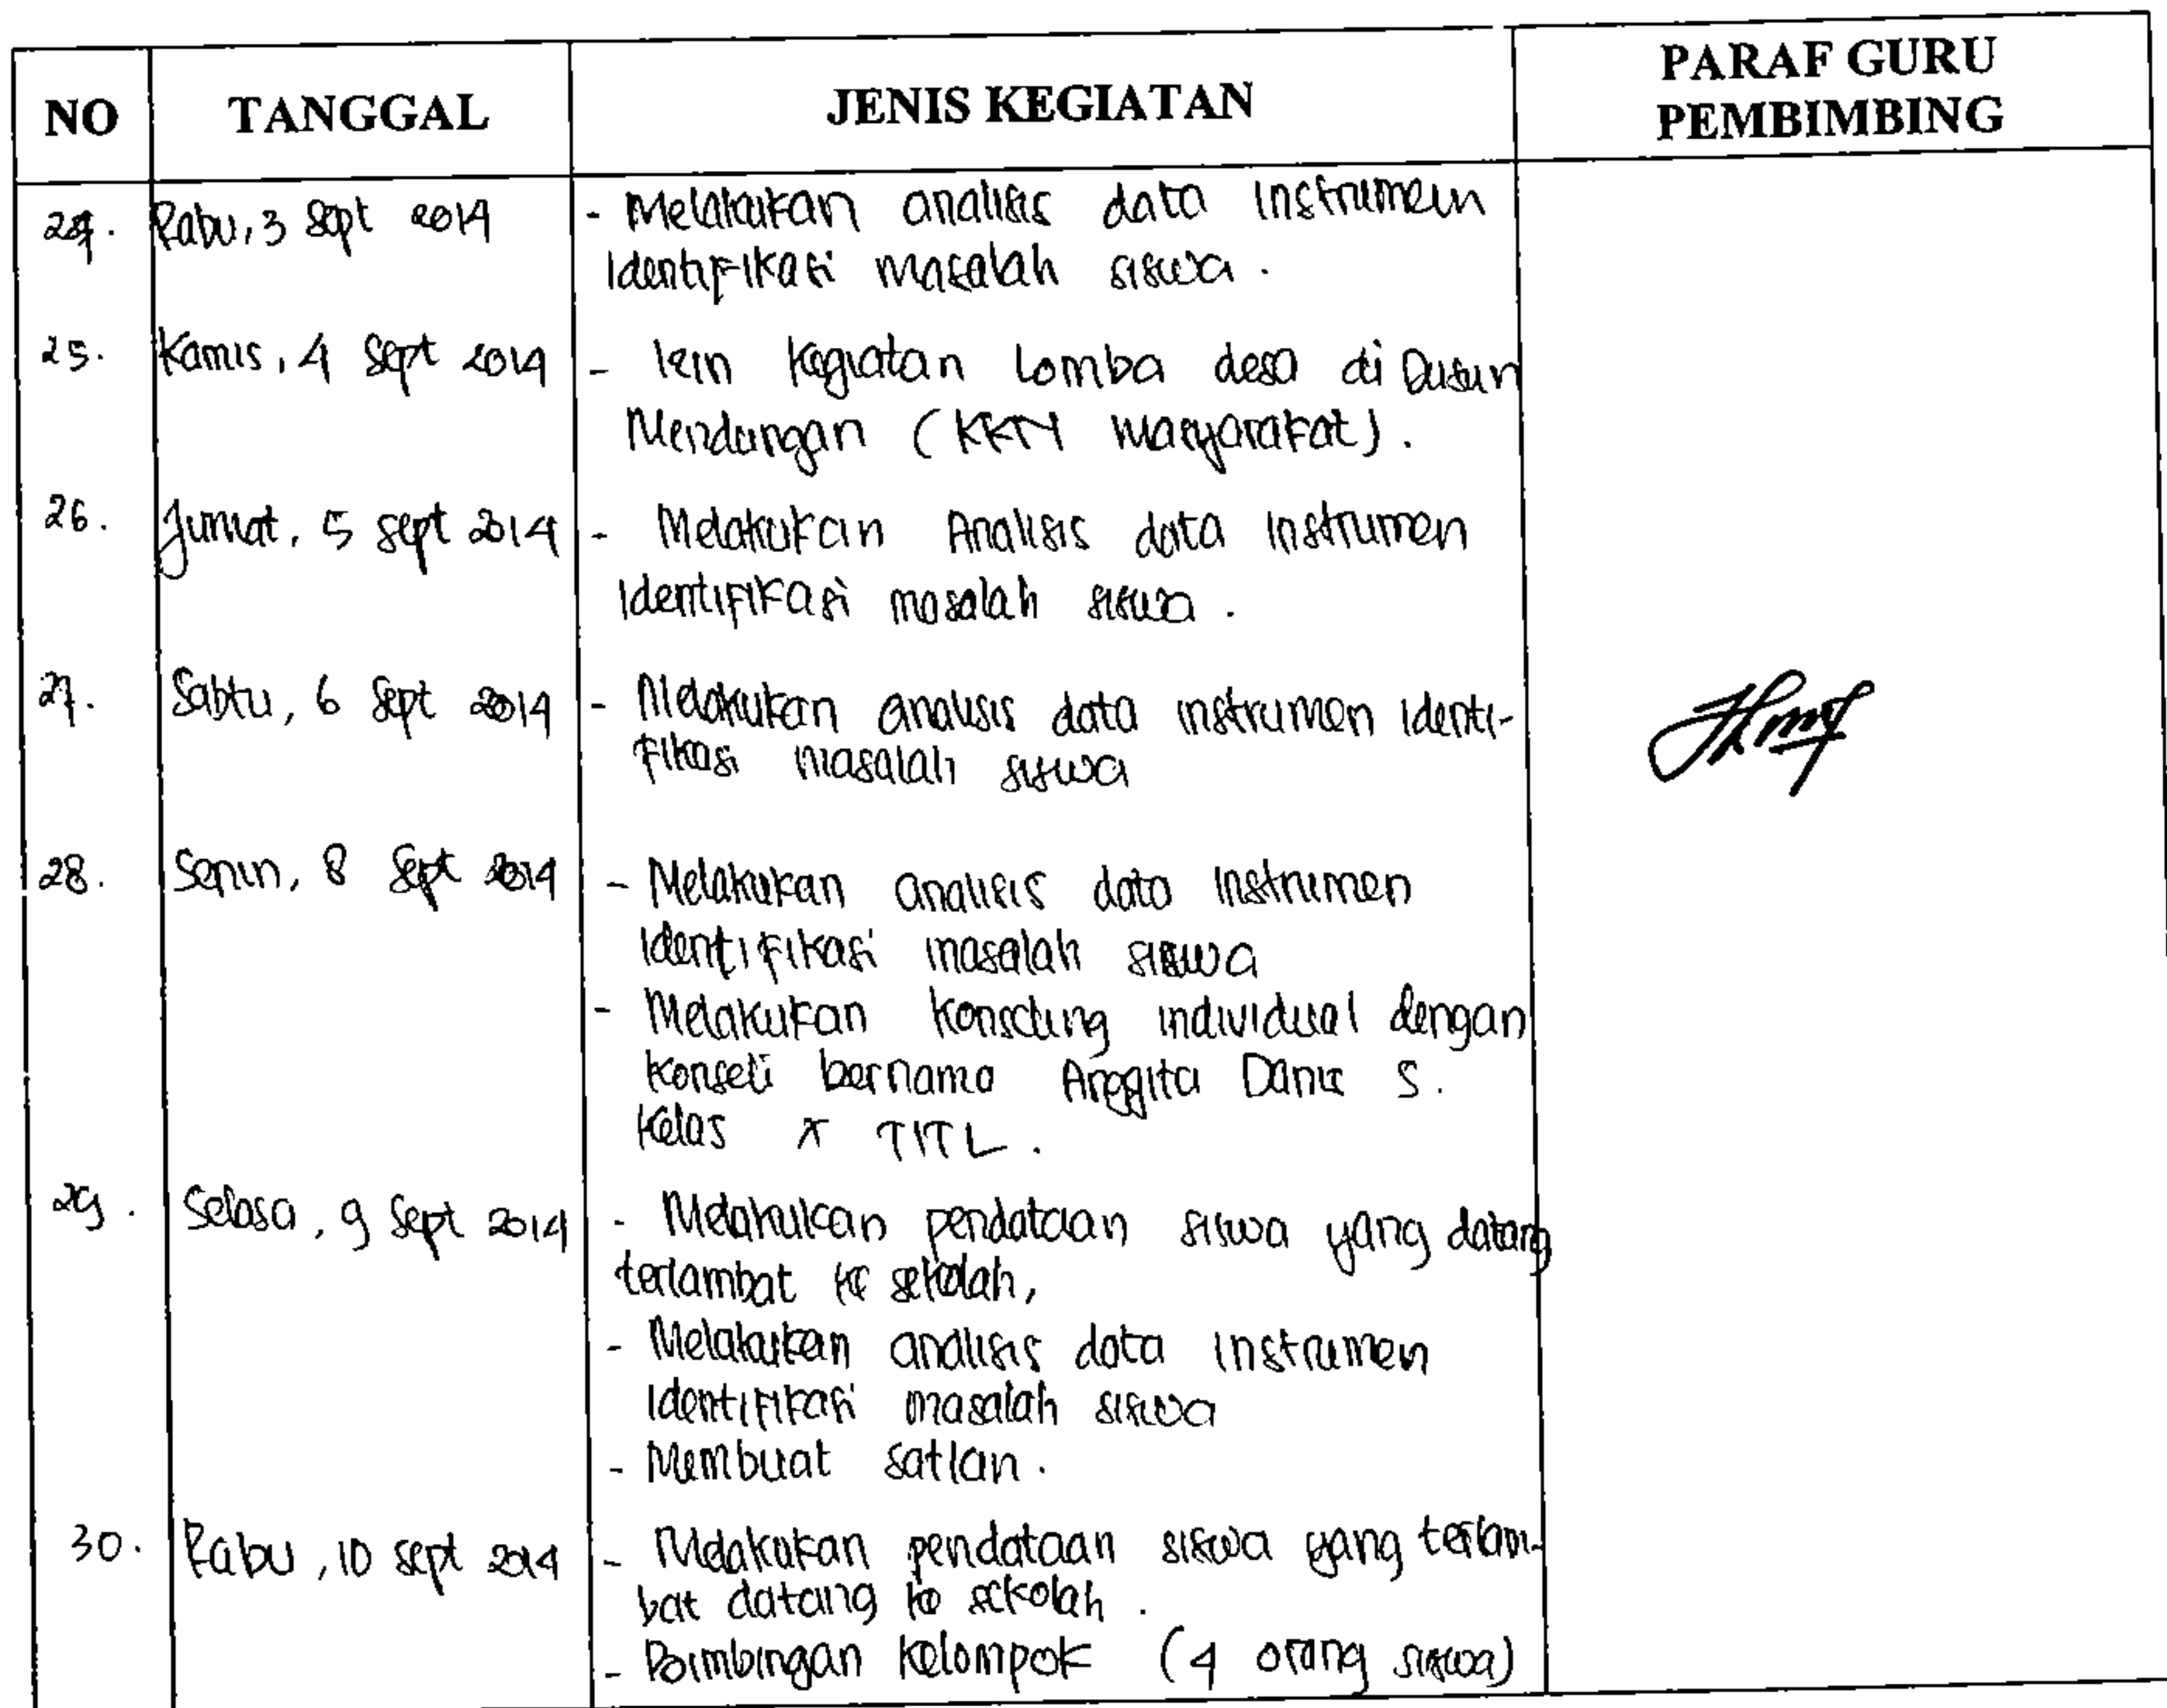 NO TANGGAL JENIS KEGIATAN PARAF GURU PEMBIMBING
24. Rabu, 3 Sept 2014 - Melakukan analisis data instrumen
identifikasi masalah siswa.
25. Kamis, 4 Sept 2014 - Izin kegiatan Lomba desa di Dusun
Mendungan (KKN Masyarakat).
26. Jumat, 5 Sept 2014 - Melakukan Analisis data instrumen
identifikasi masalah siswa.
27. Sabtu, 6 Sept 2014 - Melakukan analisis data instrumen identi-
fikasi masalah siswa
28. Senin, 8 Sept 2014 - Melakukan analisis data instrumen
identifikasi masalah siswa
- Melakukan konseling individual dengan
konseli bernama Anggita S.
Kelas X TITL.
29. Selasa, 9 Sept 2014 - Melakukan pendataan siswa yang datang
terlambat ke sekolah,
- Melakukan analisis data instrumen
identifikasi masalah siswa
- Membuat satlan.
30. Rabu, 10 Sept 2014 - Melakukan pendataan siswa yang terlam-
bat datang ke sekolah.
- Bimbingan Kelompok (4 orang siswa)